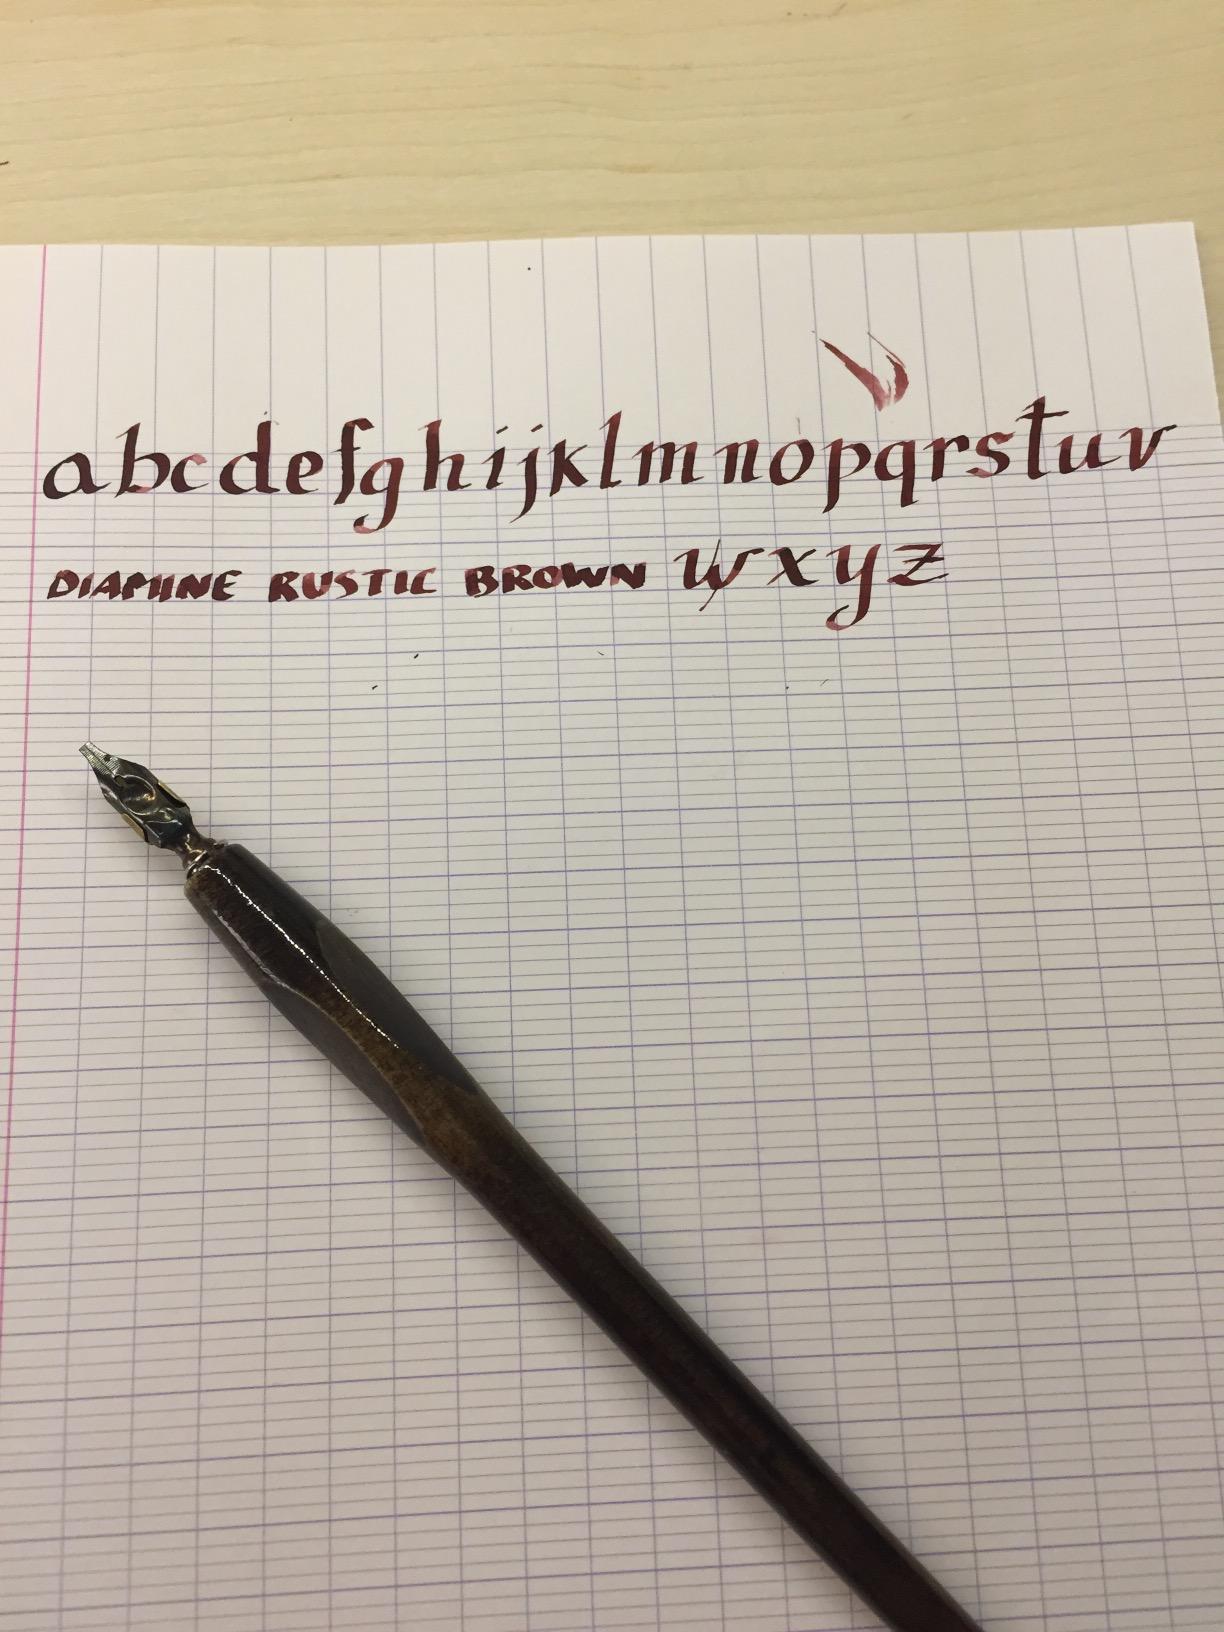 abcdefghijklmnopqrstuv
DIAMINE RUSTIC BROWN wxyz